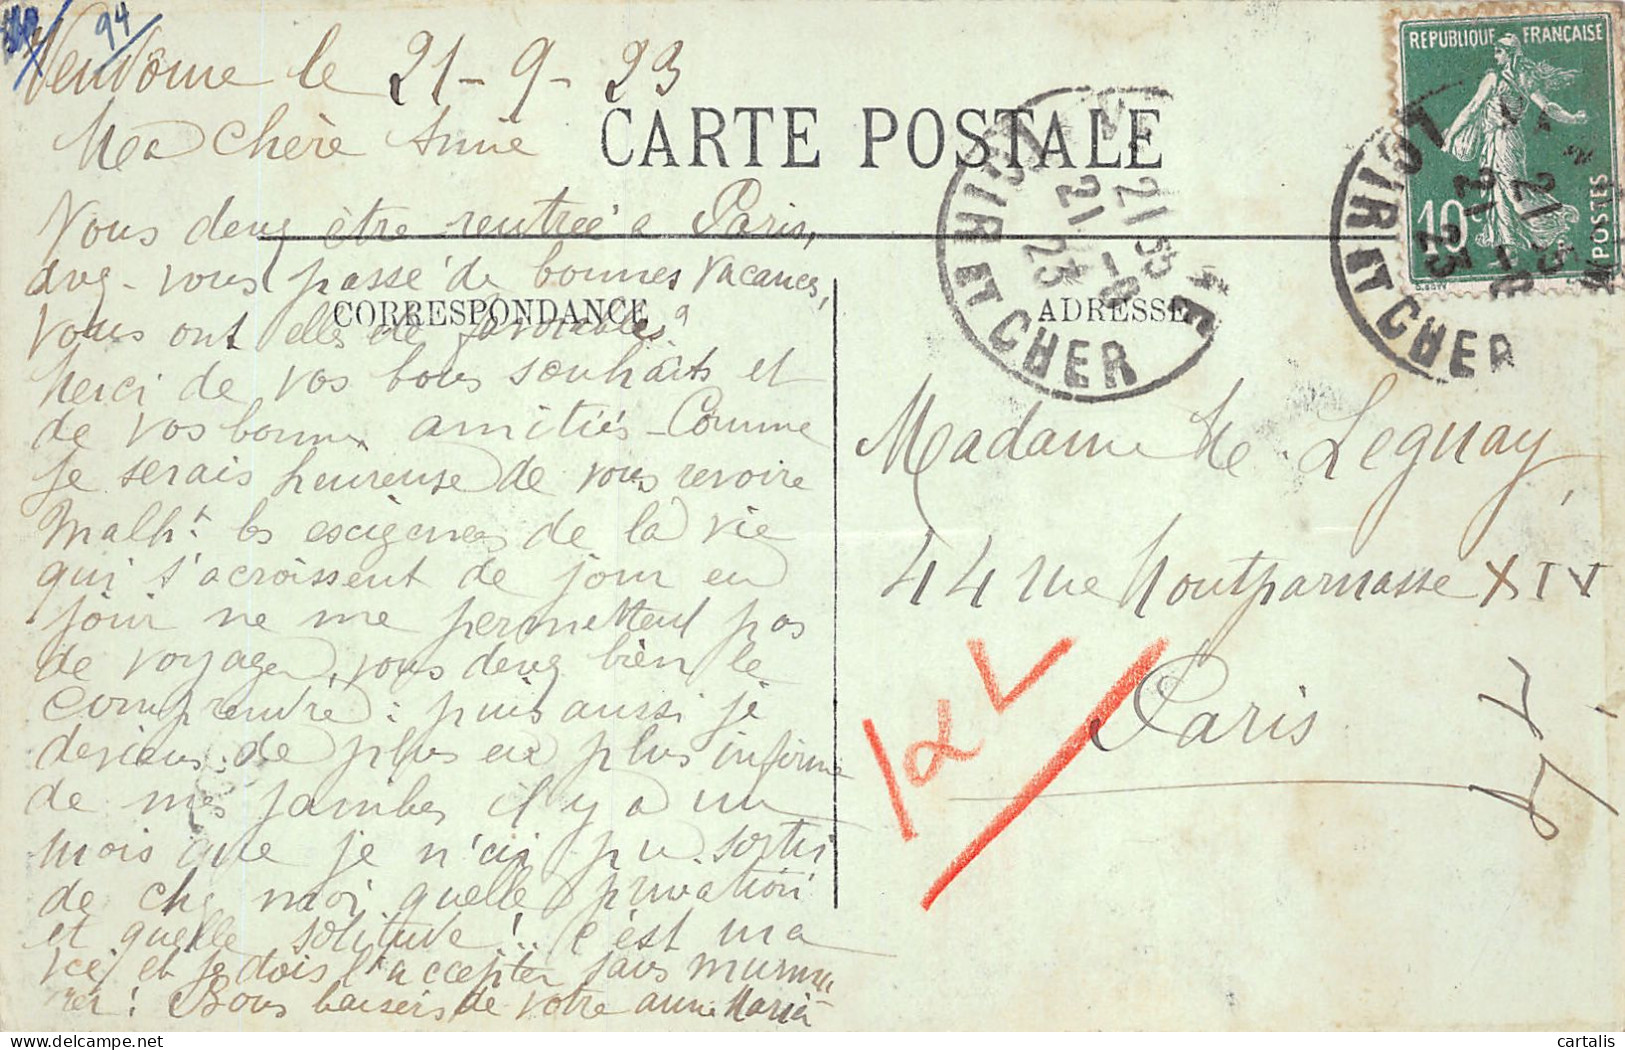 94
Vendôme le 21-9-23
CARTE POSTALE
Ma Chère Amie
Vous devez être rentrée a Paris,
avez-vous passé de bonnes vacances,
CORRESPONDANCE
vous ont elles été favorables?
Merci de vos bons souhaits et
de vos bonnes amitiés - Comme
je serais heureuse de vous revoire
Malht. les escigences de la vie
qui s'acroissent de jour en
jour ne me permettent pas
de voyager, vous devez bien le
comprendre : puis aussi je
deviens de plus en plus infirme
de mes jambes il y a un
mois que je n'ai pu sortir
de chez moi quelle privation
et quelle solitude !.. c'est ma
vie, et je dois l'accepter sans murmu
rer ! Bons baisers de votre amie Maria
ADRESSE
REPUBLIQUE FRANÇAISE
10
POSTES
LOIR ET CHER
21 55
21 -9
23
LOIR ET CHER
21 -9
23
Madame Le Leguay,
44 rue Montparnasse XIV
Paris